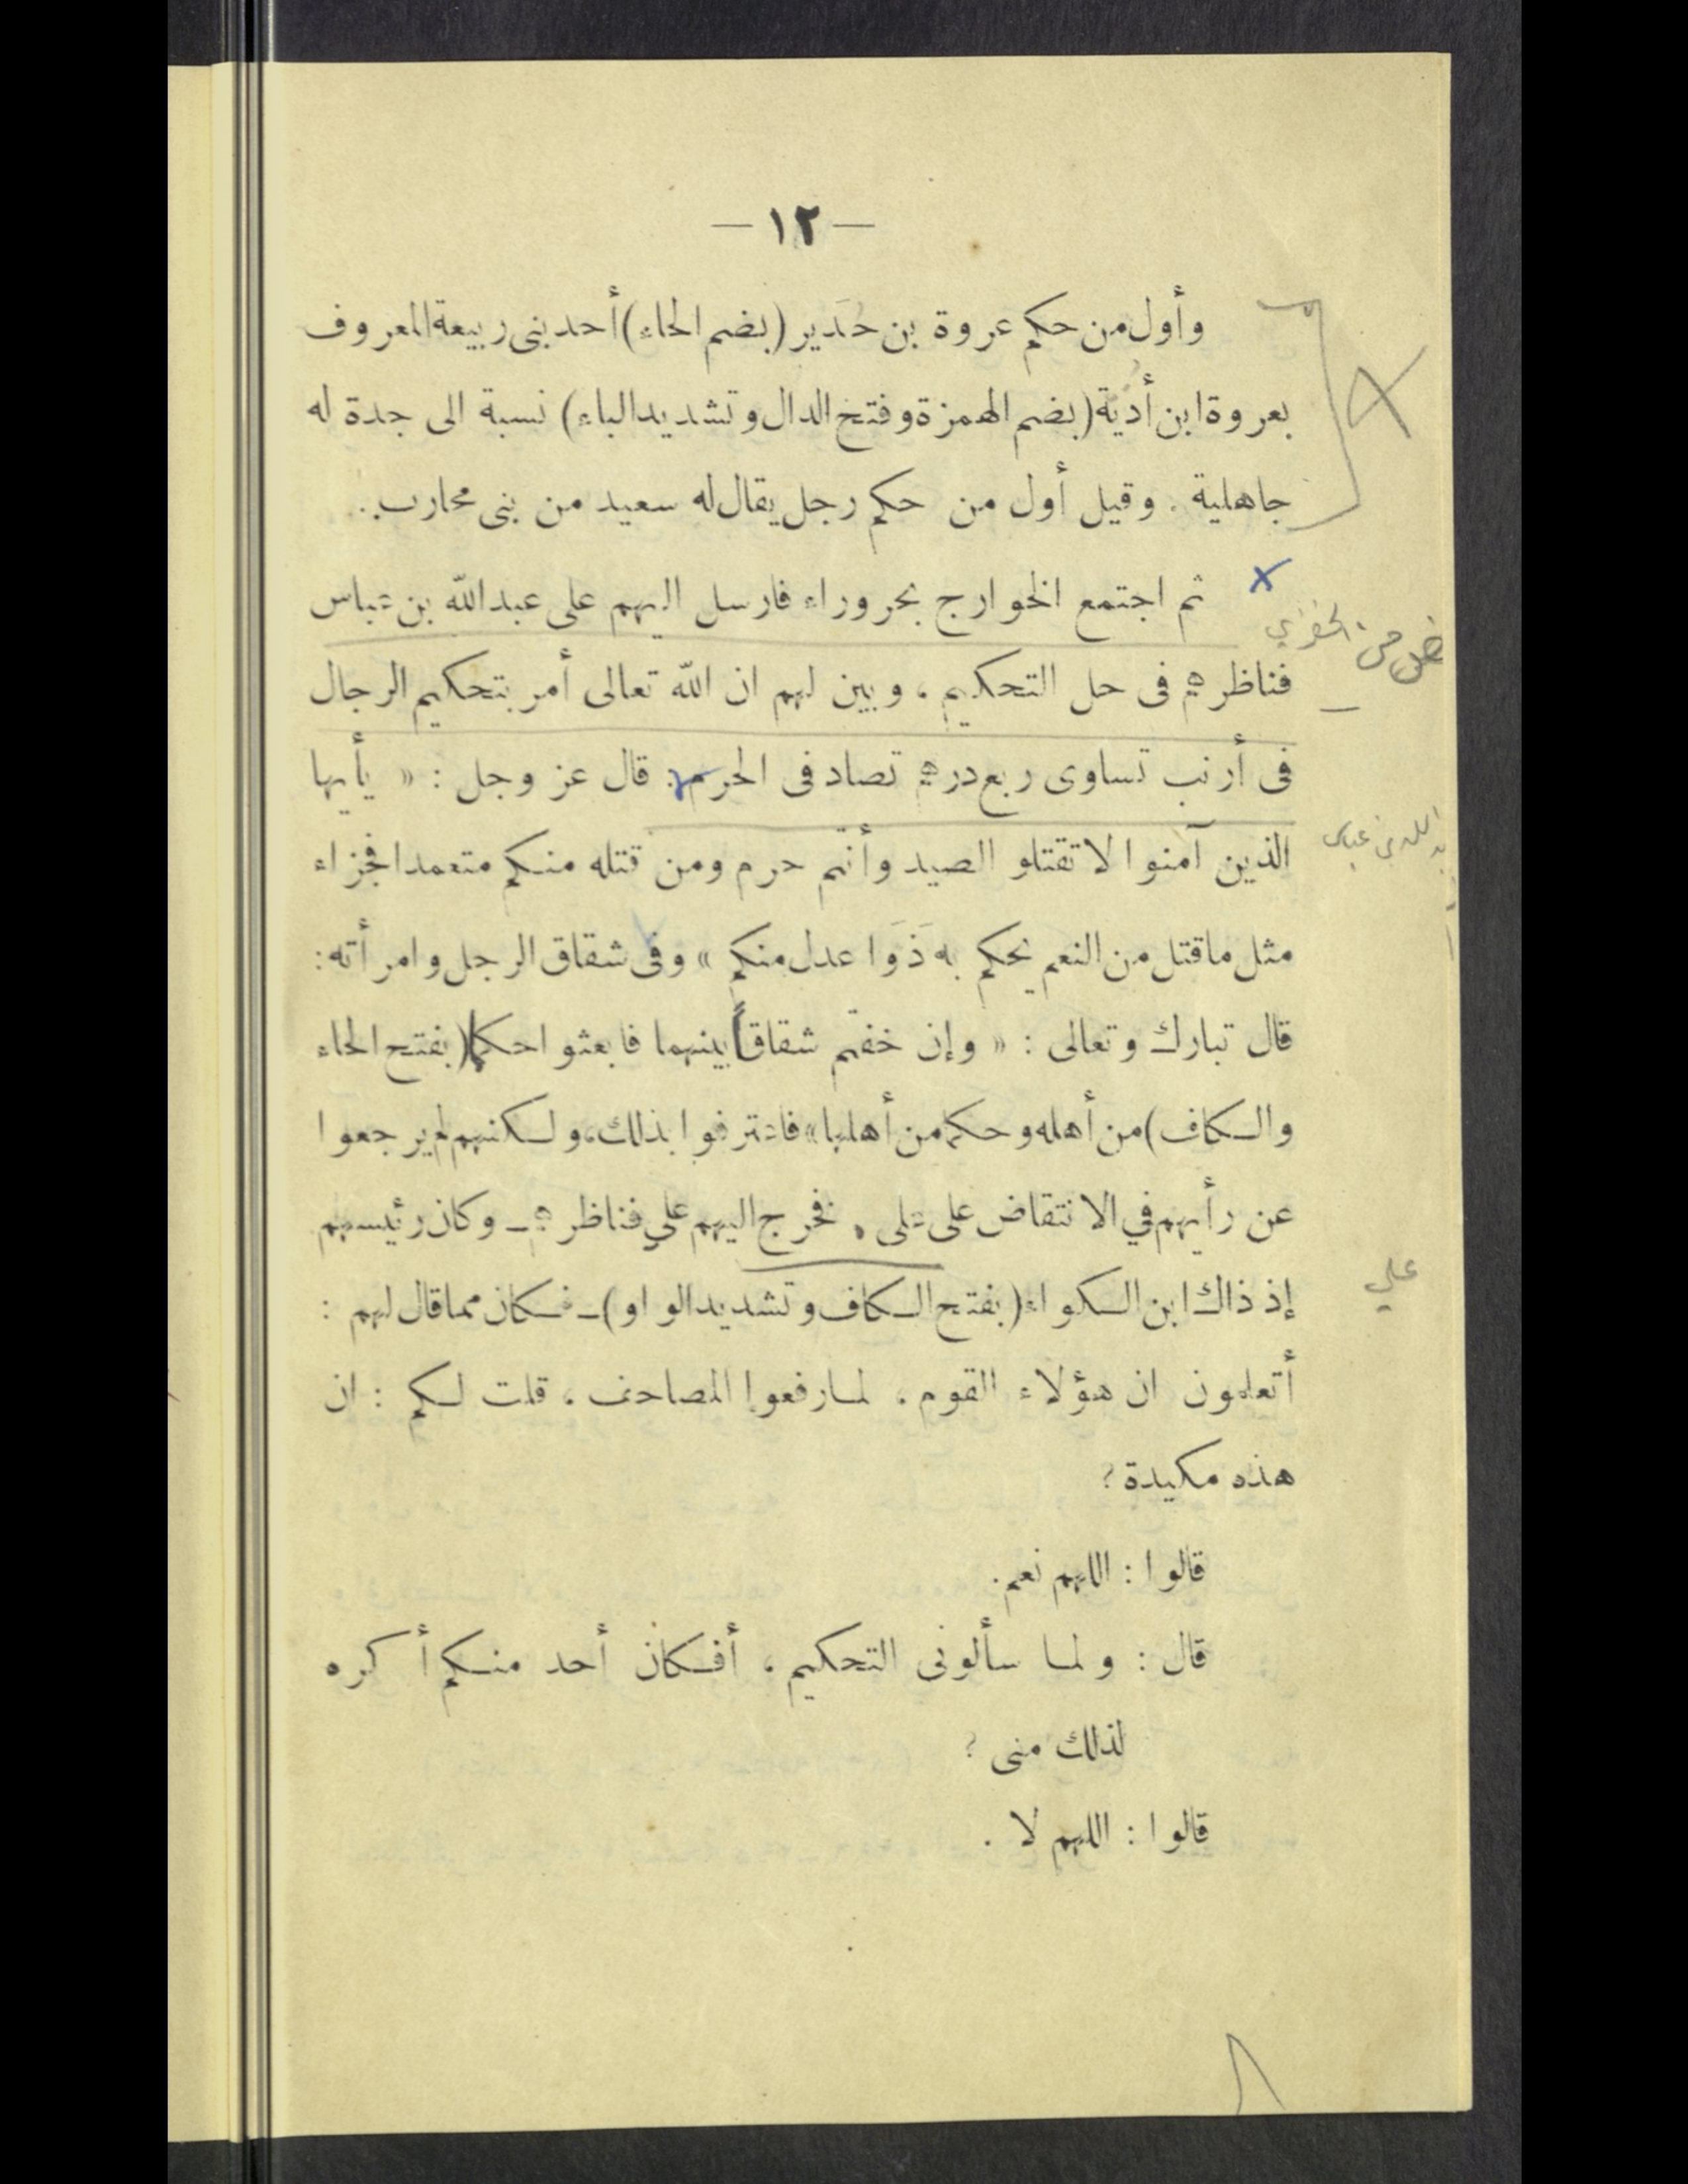 — ١٢ —
وأول من حكم عروة بن حُدَير (بضم الحاء) أحد بنى ربيعة المعروف
بعروة ابن أُديّة (بضم الهمزة وفتح الدال وتشديد الباء) نسبة الى جدة له
جاهلية . وقيل أول من حكم رجل يقال له سعيد من بنى محارب .
ثم اجتمع الخوارج بحروراء فارسل اليهم على عبد الله بن عباس
فناظرهم فى حل التحكيم ، وبين لهم ان الله تعالى أمر بتحكيم الرجال
فى أرنب تساوى ربع درهم تصاد فى الحرم : قال عز وجل : « يأيها
الذين آمنوا لا تقتلو الصيد وأنتم حرم ومن قتله منكم متعمدا فجزاء
مثل ما قتل من النعم يحكم به ذَوَا عدل منكم » وفى شقاق الرجل وامرأته :
قال تبارك وتعالى : « وإن خفتم شقاقاً بينهما فابعثوا حكما (بفتح الحاء
والكاف) من أهله وحكما من أهلها » فاعترفوا بذلك ، ولكنهم لم يرجعوا
عن رأيهم في الانتقاض على على . فخرج اليهم علي فناظرهم ـ وكان رئيسهم
إذ ذاك ابن الكواء (بفتح الكاف وتشديد الواو) ـ فكان مما قال لهم :
أتعلمون ان هؤلاء القوم ، لما رفعوا المصاحف ، قلت لكم : ان
هذه مكيدة ؟
قالوا : اللهم نعم .
قال : ولما سألونى التحكيم ، أفكان أحد منكم أكره
لذلك منى ؟
قالوا : اللهم لا .
الله بن عباس
علي